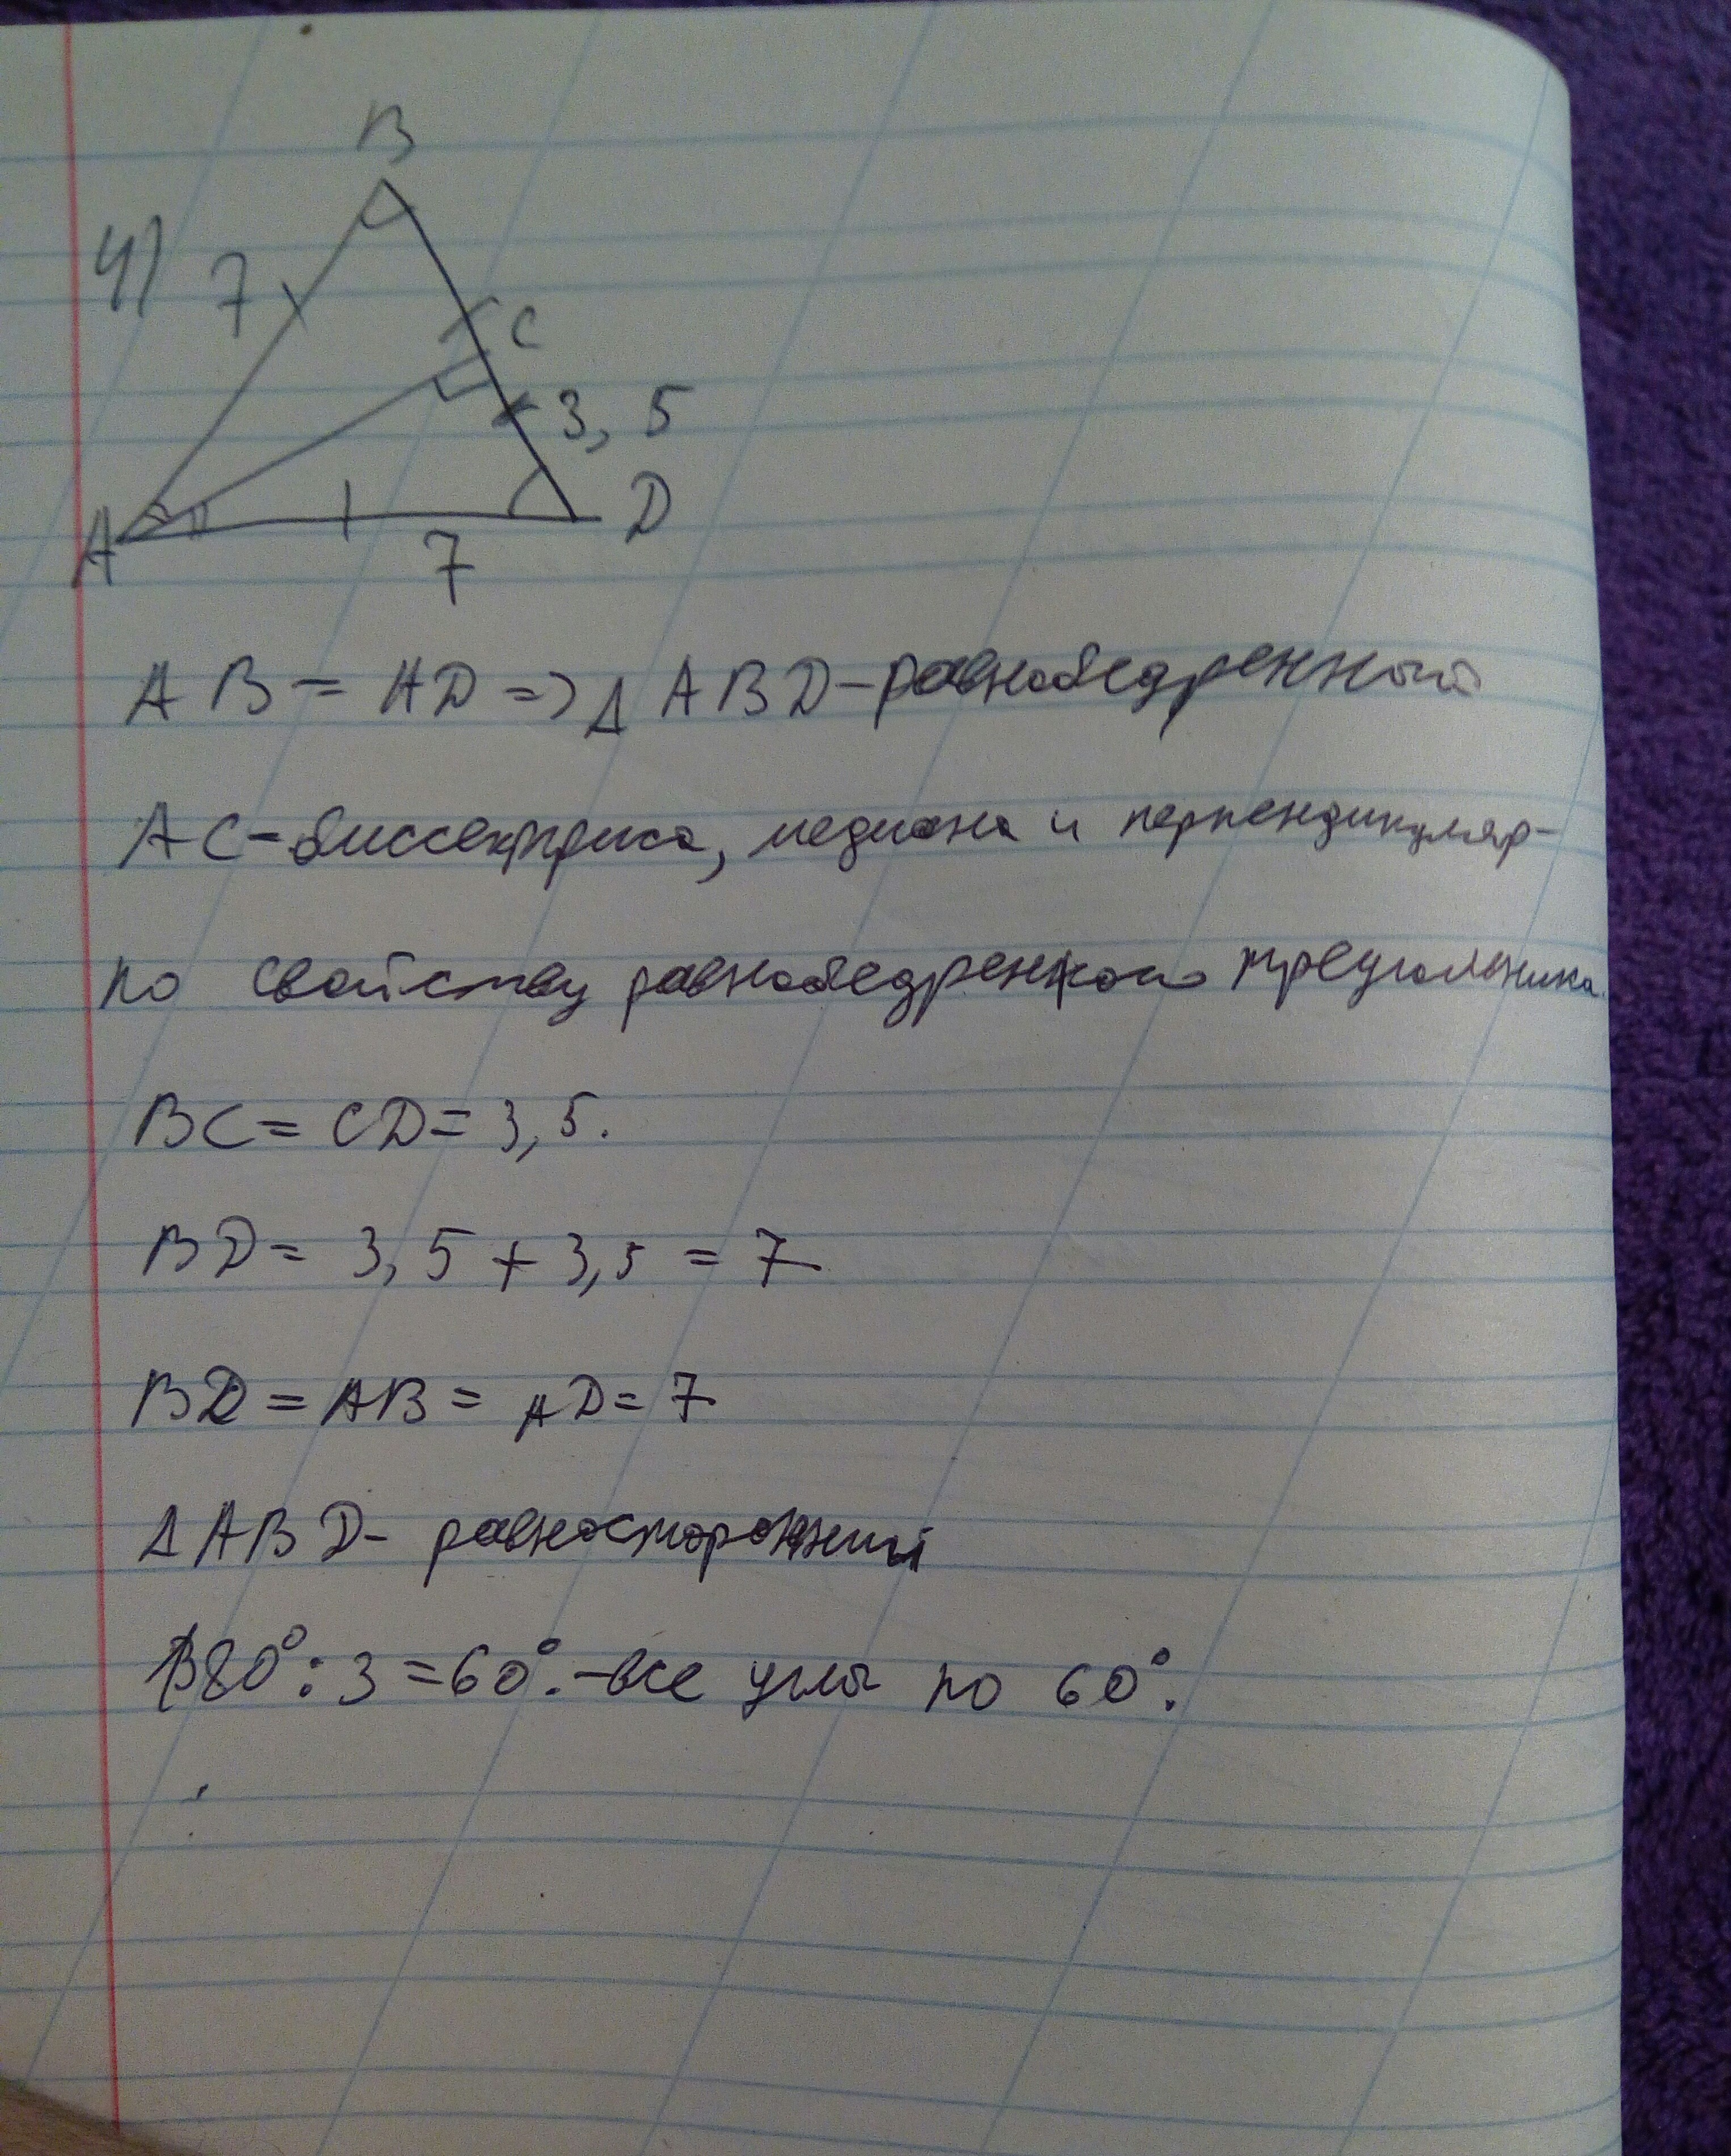 B
4)
7
C
3,5
A
D
7
AB = AD => Δ ABD - равнобедренный
AC - биссектриса, медиана и перпендикуляр -
по свойству равнобедренного треугольника.
BC = CD = 3,5.
BD = 3,5 + 3,5 = 7
BD = AB = AD = 7
Δ ABD - равносторонний
180° : 3 = 60°. - все углы по 60°.